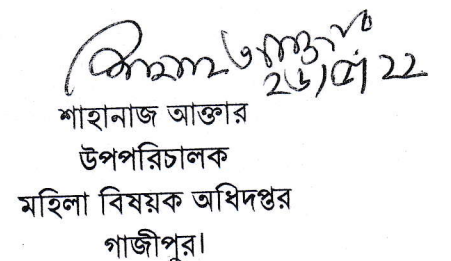 শাহানাজ আক্তার
উপপরিচালক
মহিলা বিষয়ক অধিদপ্তর
গাজীপুর।